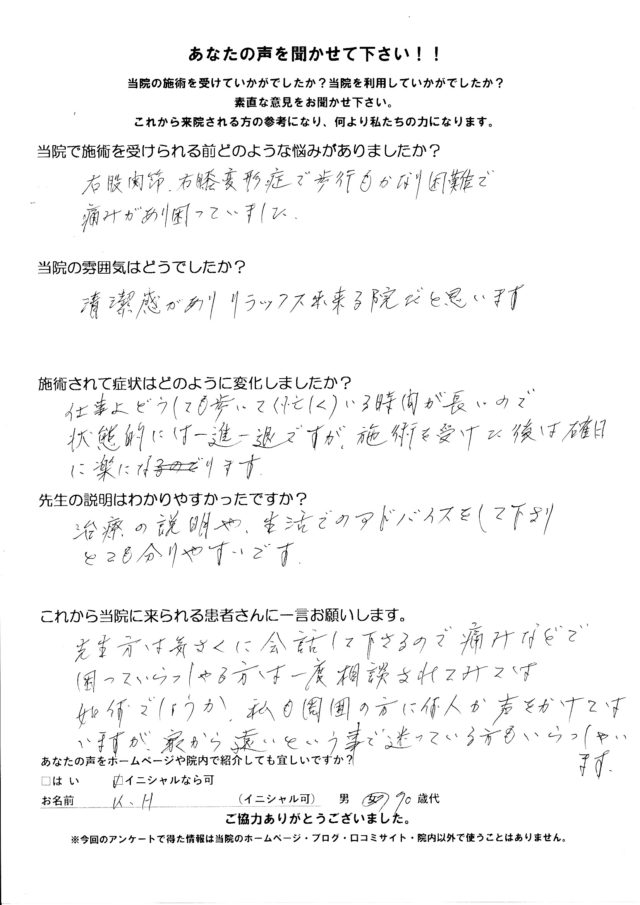 あなたの声を聞かせて下さい！！
当院の施術を受けていかがでしたか？当院を利用していかがでしたか？
素直な意見をお聞かせ下さい。
これから来院される方の参考になり、何より私たちの力になります。
当院で施術を受けられる前どのような悩みがありましたか？
右股関節、右膝変形症で歩行もかなり困難で
痛みがあり困っていました。
当院の雰囲気はどうでしたか？
清潔感がありリラックス出来る院だと思います
施術されて症状はどのように変化しましたか？
仕事上どうしても歩いて(忙しく)いる時間が長いので
状態的には一進一退ですが、施術を受けた後は確実
に楽になります。
先生の説明はわかりやすかったですか？
治療の説明や、生活でのアドバイスをして下さり
とても分りやすいです。
これから当院に来られる患者さんに一言お願いします。
先生方は気さくに会話して下さるので痛みなどで
困っていらっしゃる方は一度相談されてみては
如何でしょうか、私も周囲の方に何人か声をかけては
いますが、家から遠いという事で迷っている方もいらっしゃい
ます。
あなたの声をホームページや院内で紹介しても宜しいですか？
□はい ☑イニシャルなら可
お名前 K.H （イニシャル可） 男 女 70 歳代
ご協力ありがとうございました。
※今回のアンケートで得た情報は当院のホームページ・ブログ・口コミサイト・院内以外で使うことはありません。